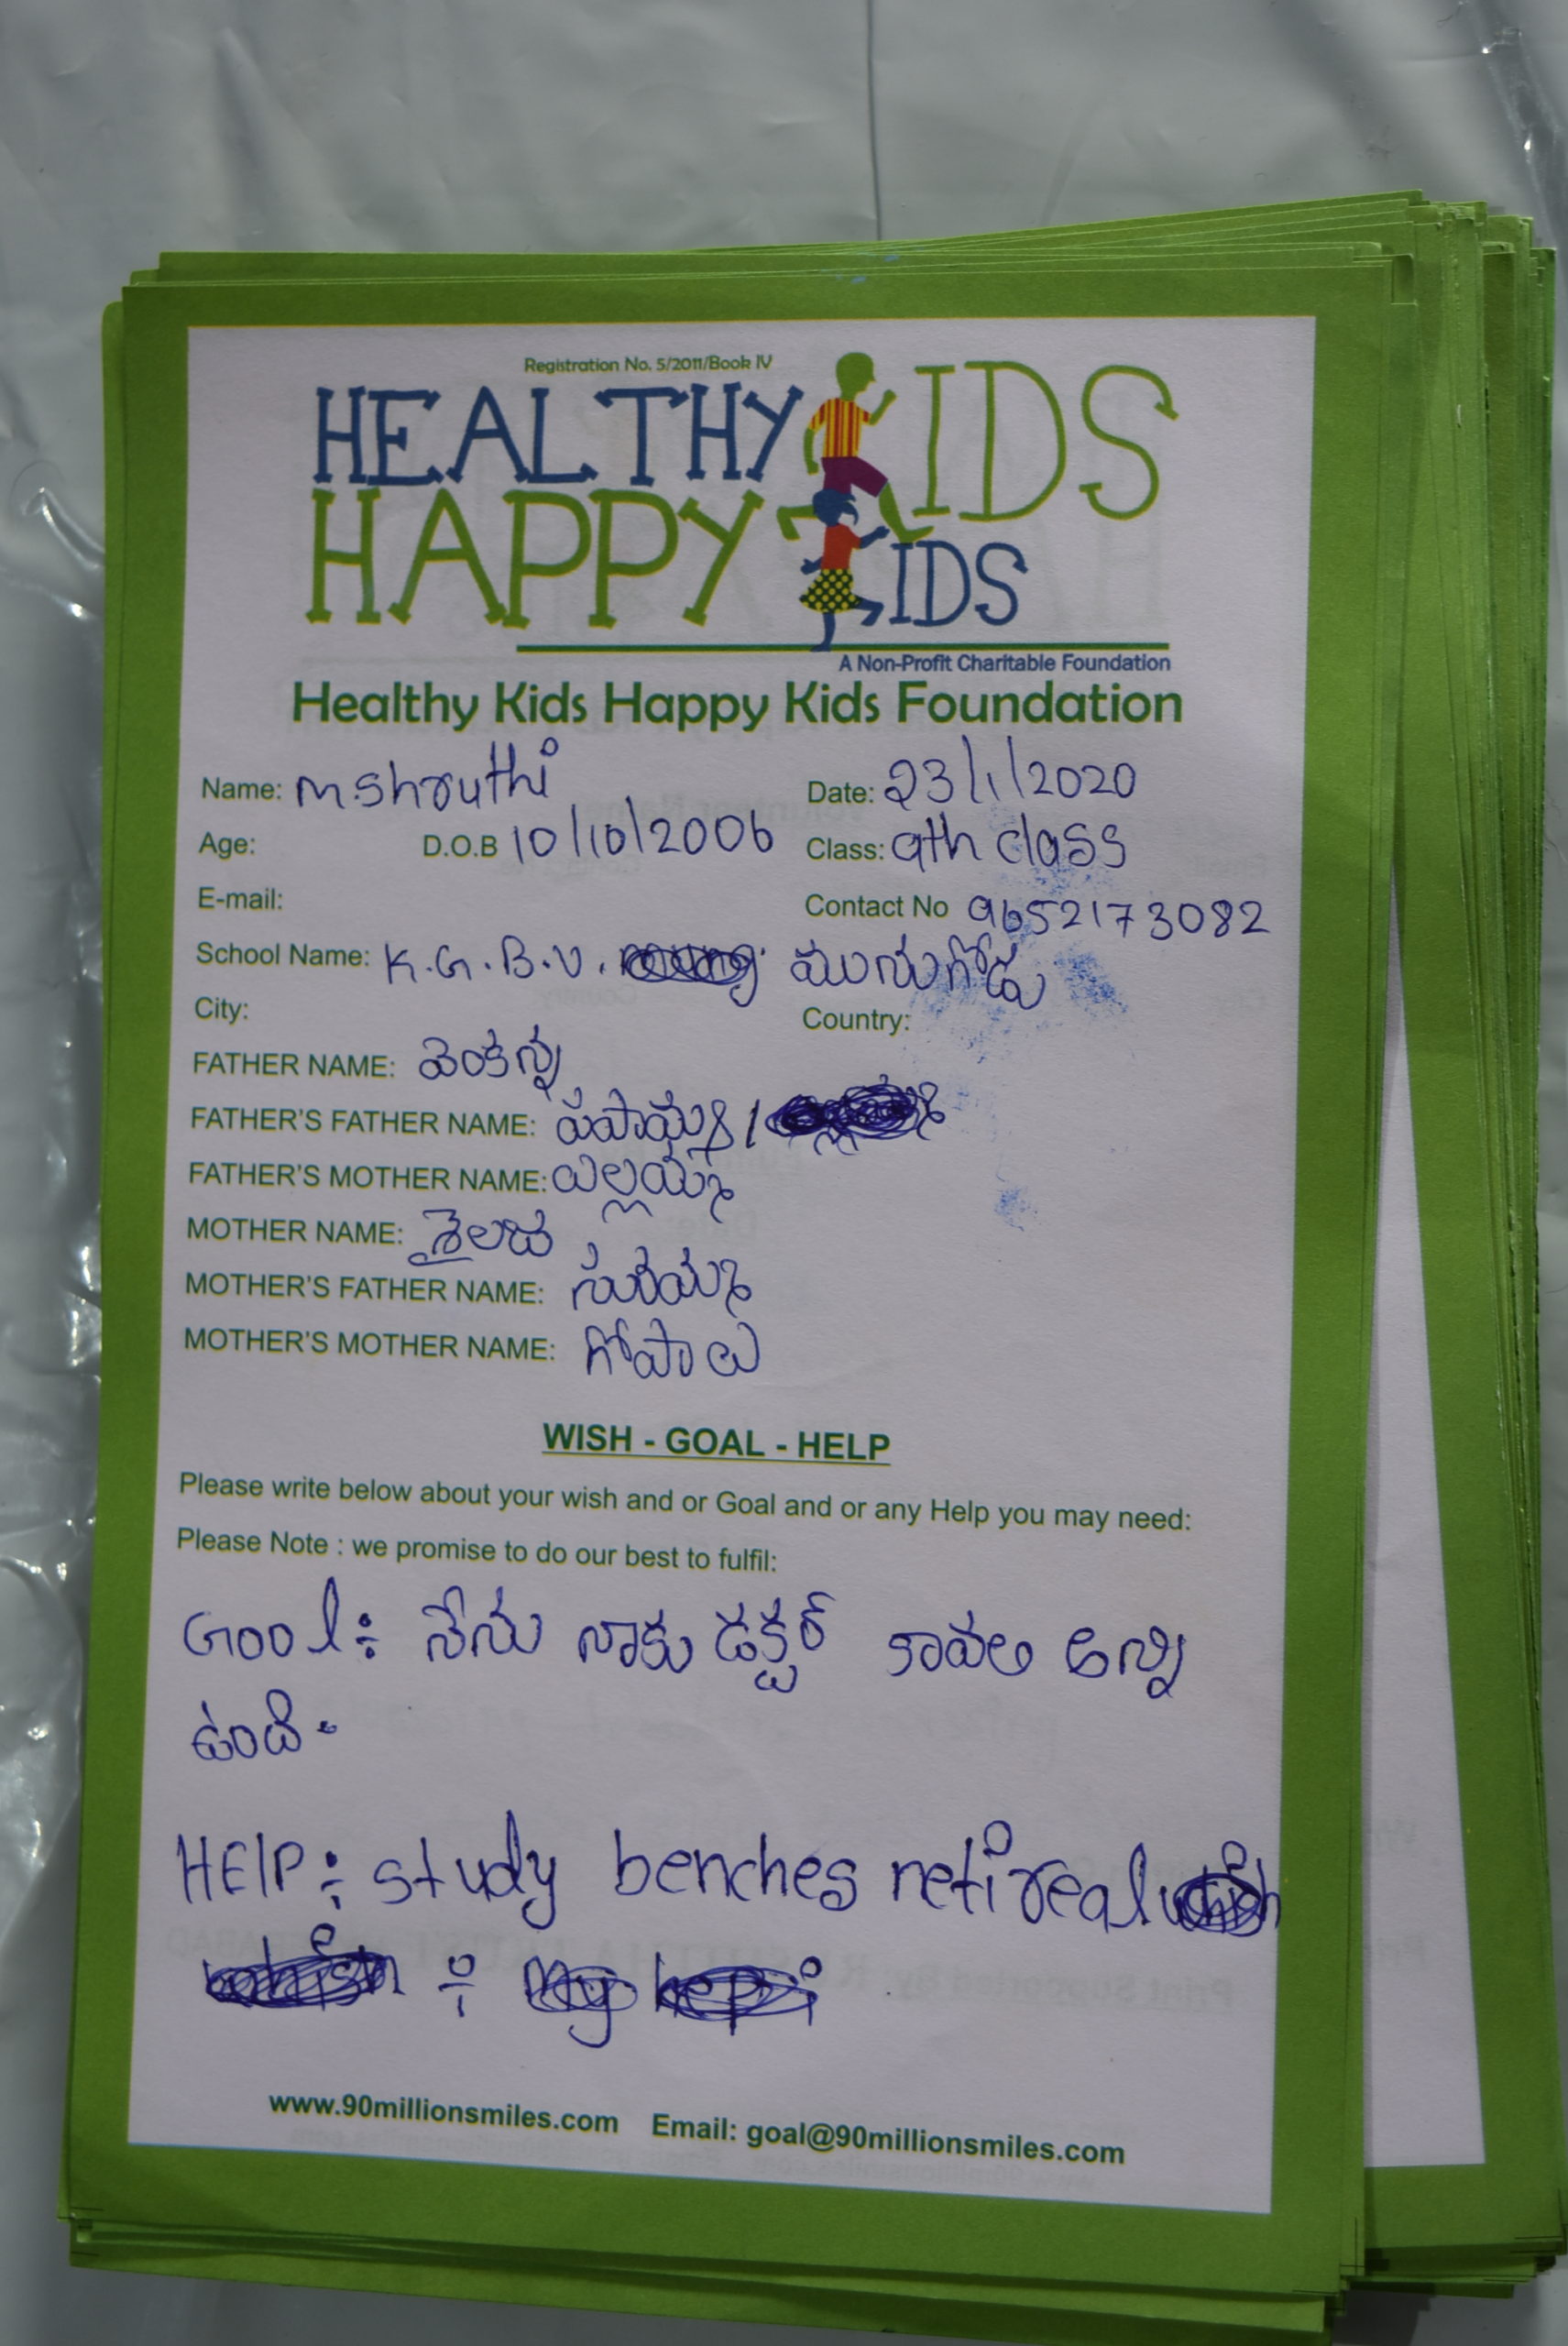 Registration No. 5/2011/Book IV
HEALTHY KIDS
HAPPY KIDS
A Non-Profit Charitable Foundation
Healthy Kids Happy Kids Foundation
Name: M.Shruthi Date: 23/1/2020
Age: D.O.B 10/10/2006 Class: 9th class
E-mail: Contact No 9652173082
School Name: K.G.B.V. మునుగోడు
City: Country:
FATHER NAME: వెంకన్న
FATHER'S FATHER NAME:
FATHER'S MOTHER NAME: ఎల్లయ్య
MOTHER NAME: శైలజ
MOTHER'S FATHER NAME:
MOTHER'S MOTHER NAME: గోపాలు
WISH - GOAL - HELP
Please write below about your wish and or Goal and or any Help you may need:
Please Note : we promise to do our best to fulfil:
Gool: నేను నాకు డక్టర్ కావల అన్ని
ఉంది.
HElP: study benches netireal
www.90millionsmiles.com Email: goal@90millionsmiles.com